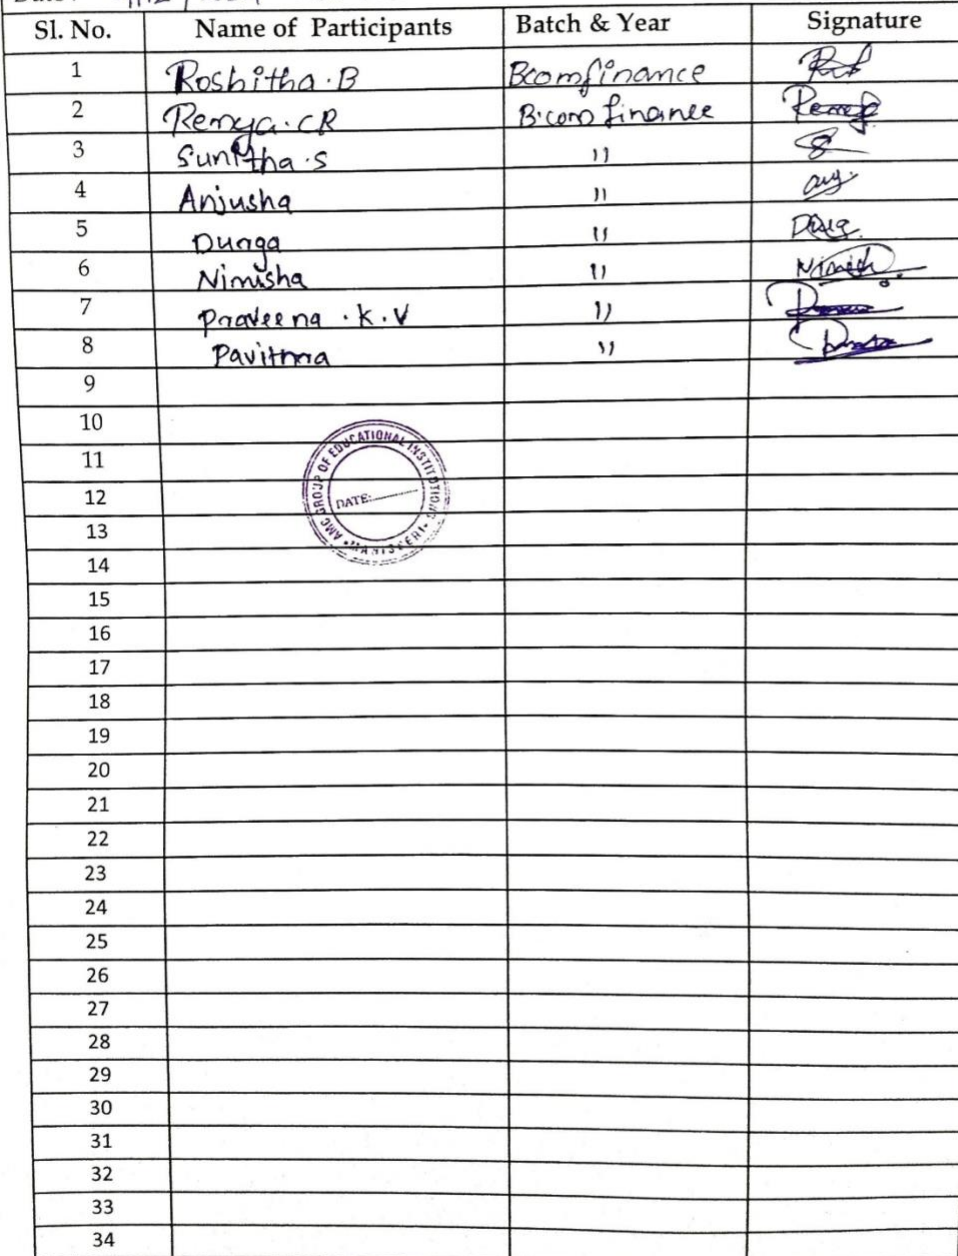 Sl. No. Name of Participants Batch & Year Signature
1 Roshitha.B Bcom finance
2 Remya.CR B.com finance
3 Sunitha.S "
4 Anjusha "
5 Durga "
6 Nimisha "
7 Praveena .K.V "
8 Pavithra "
9
10
11
12
13
14
15
16
17
18
19
20
21
22
23
24
25
26
27
28
29
30
31
32
33
34
AMC GROUP OF EDUCATIONAL INSTITUTIONS
DATE: